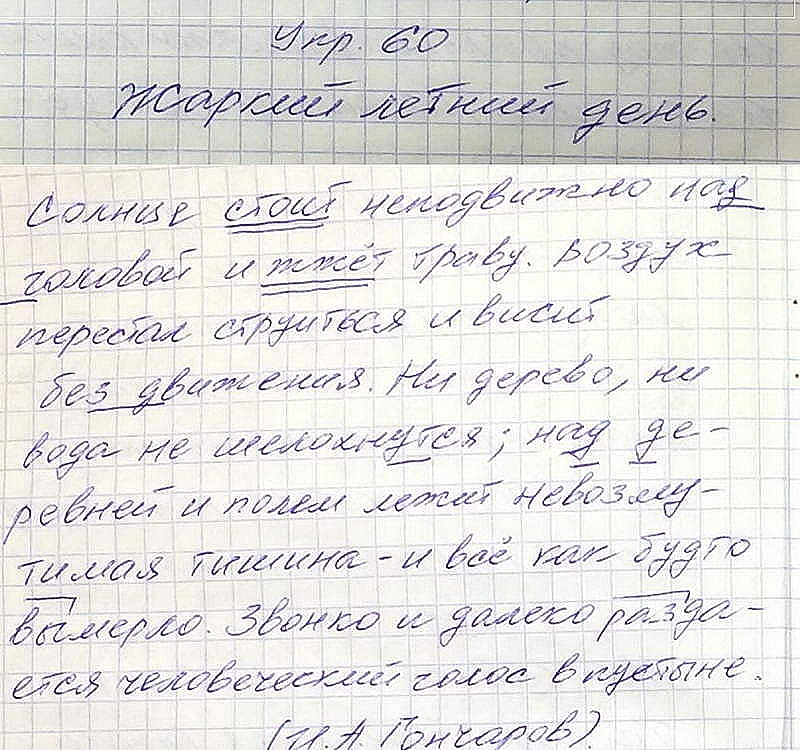 Упр. 60
Жаркий летний день.
Солнце стоит неподвижно над
головой и жжёт траву. Воздух
перестал струиться и висит
без движения. Ни дерево, ни
вода не шелохнутся; над де-
ревней и полем лежит невозму-
тимая тишина - и всё как будто
вымерло. Звонко и далеко разда-
ется человеческий голос в пустыне.
(И.А. Гончаров).